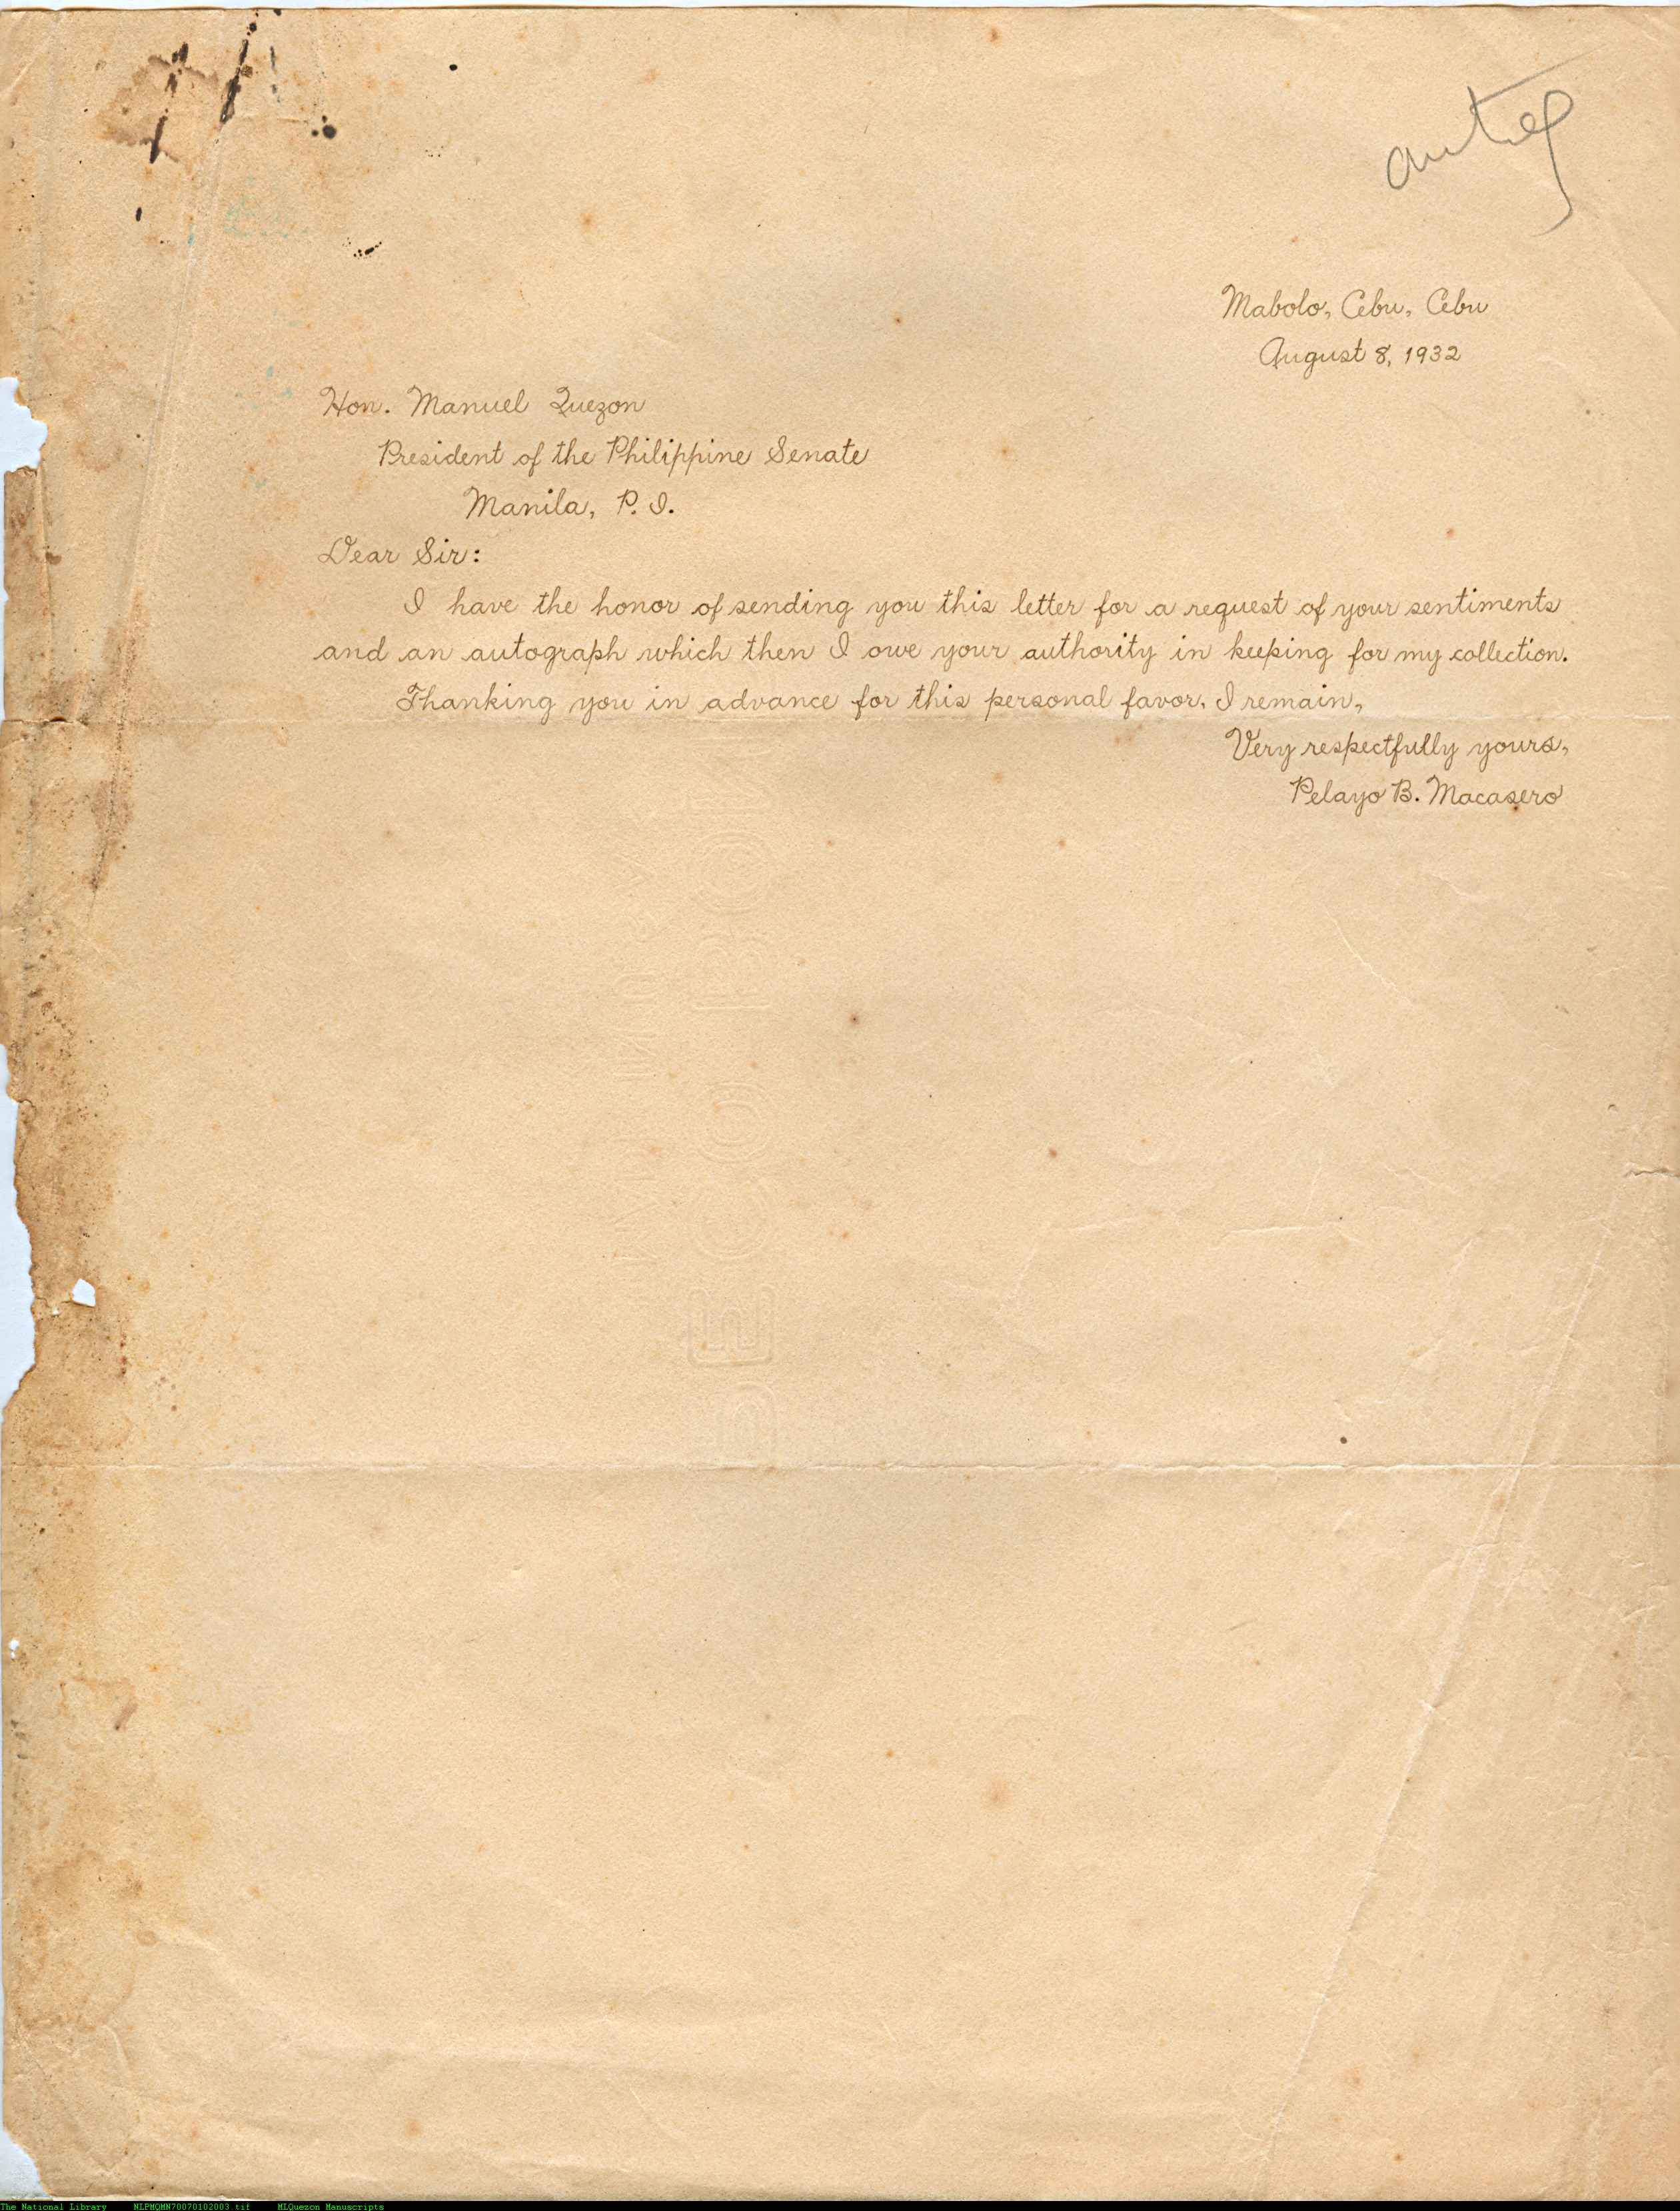 Mabolo, Cebu, Cebu
August 8, 1932
Hon. Manuel Quezon
President of the Philippine Senate
Manila, P. I.
Dear Sir:
I have the honor of sending you this letter for a request of your sentiments
and an autograph which then I owe your authority in keeping for my collection.
Thanking you in advance for this personal favor, I remain,
Very respectfully yours,
Pelayo B. Macasero
The National Library NLPMQMN70070102003.tif MLQuezon Manuscripts